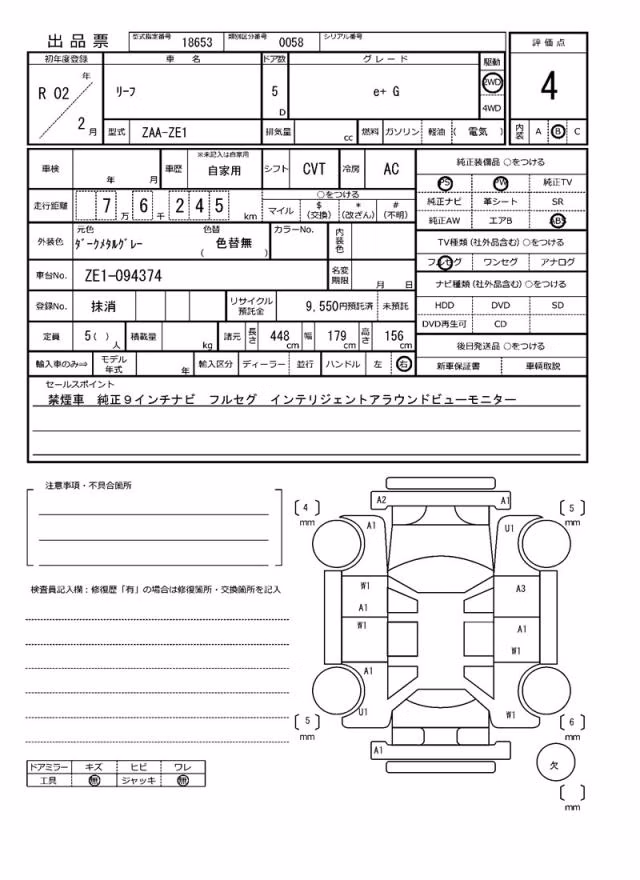 出品票 型式指定番号 18653 類別区分番号 0058 シリアル番号
評価点
4
内装 A B C
初年度登録 車名 ドア数 グレード 駆動
R 02 年 2 月 リーフ 5 D e+ G 2WD 4WD
型式 ZAA-ZE1 排気量 cc 燃料 ガソリン 軽油 ( 電気 )
車検 年 月 車歴 ※未記入は自家用 自家用 シフト CVT 冷房 AC
走行距離 7 万 6 千 2 4 5 km ○をつける
マイル $(交換) *(改ざん) #(不明)
外装色 元色 ダークメタルグレー 色替 色替無 ( ) カラーNo. 内装色
車台No. ZE1-094374 名変期限 月 日
登録No. 抹消 リサイクル預託金 9,550円預託済 未預託
定員 5( ) 人 積載量 kg 諸元 長さ 448 cm 幅 179 cm 高さ 156 cm
輸入車のみ⇒ モデル年式 年 輸入区分 ディーラー 並行 ハンドル 左 右
純正装備品 ○をつける
PS PW 純正TV
純正ナビ 革シート SR
純正AW エアB ABS
TV種類 (社外品含む) ○をつける
フルセグ ワンセグ アナログ
ナビ種類 (社外品含む) ○をつける
HDD DVD SD
DVD再生可 CD
後日発送品 ○をつける
新車保証書 車輌取説
セールスポイント
禁煙車 純正９インチナビ フルセグ インテリジェントアラウンドビューモニター
注意事項・不具合箇所
検査員記入欄：修復歴「有」の場合は修復箇所・交換箇所を記入
ドアミラー キズ ヒビ ワレ
工具 無 ジャッキ 無
A2 A1
[ 4 ] mm [ 5 ] mm
A1 U1
W1 A3
A1
W1 A1
W1
A1
U1 W1
[ 5 ] mm [ 6 ] mm
A1
欠
[ ] mm